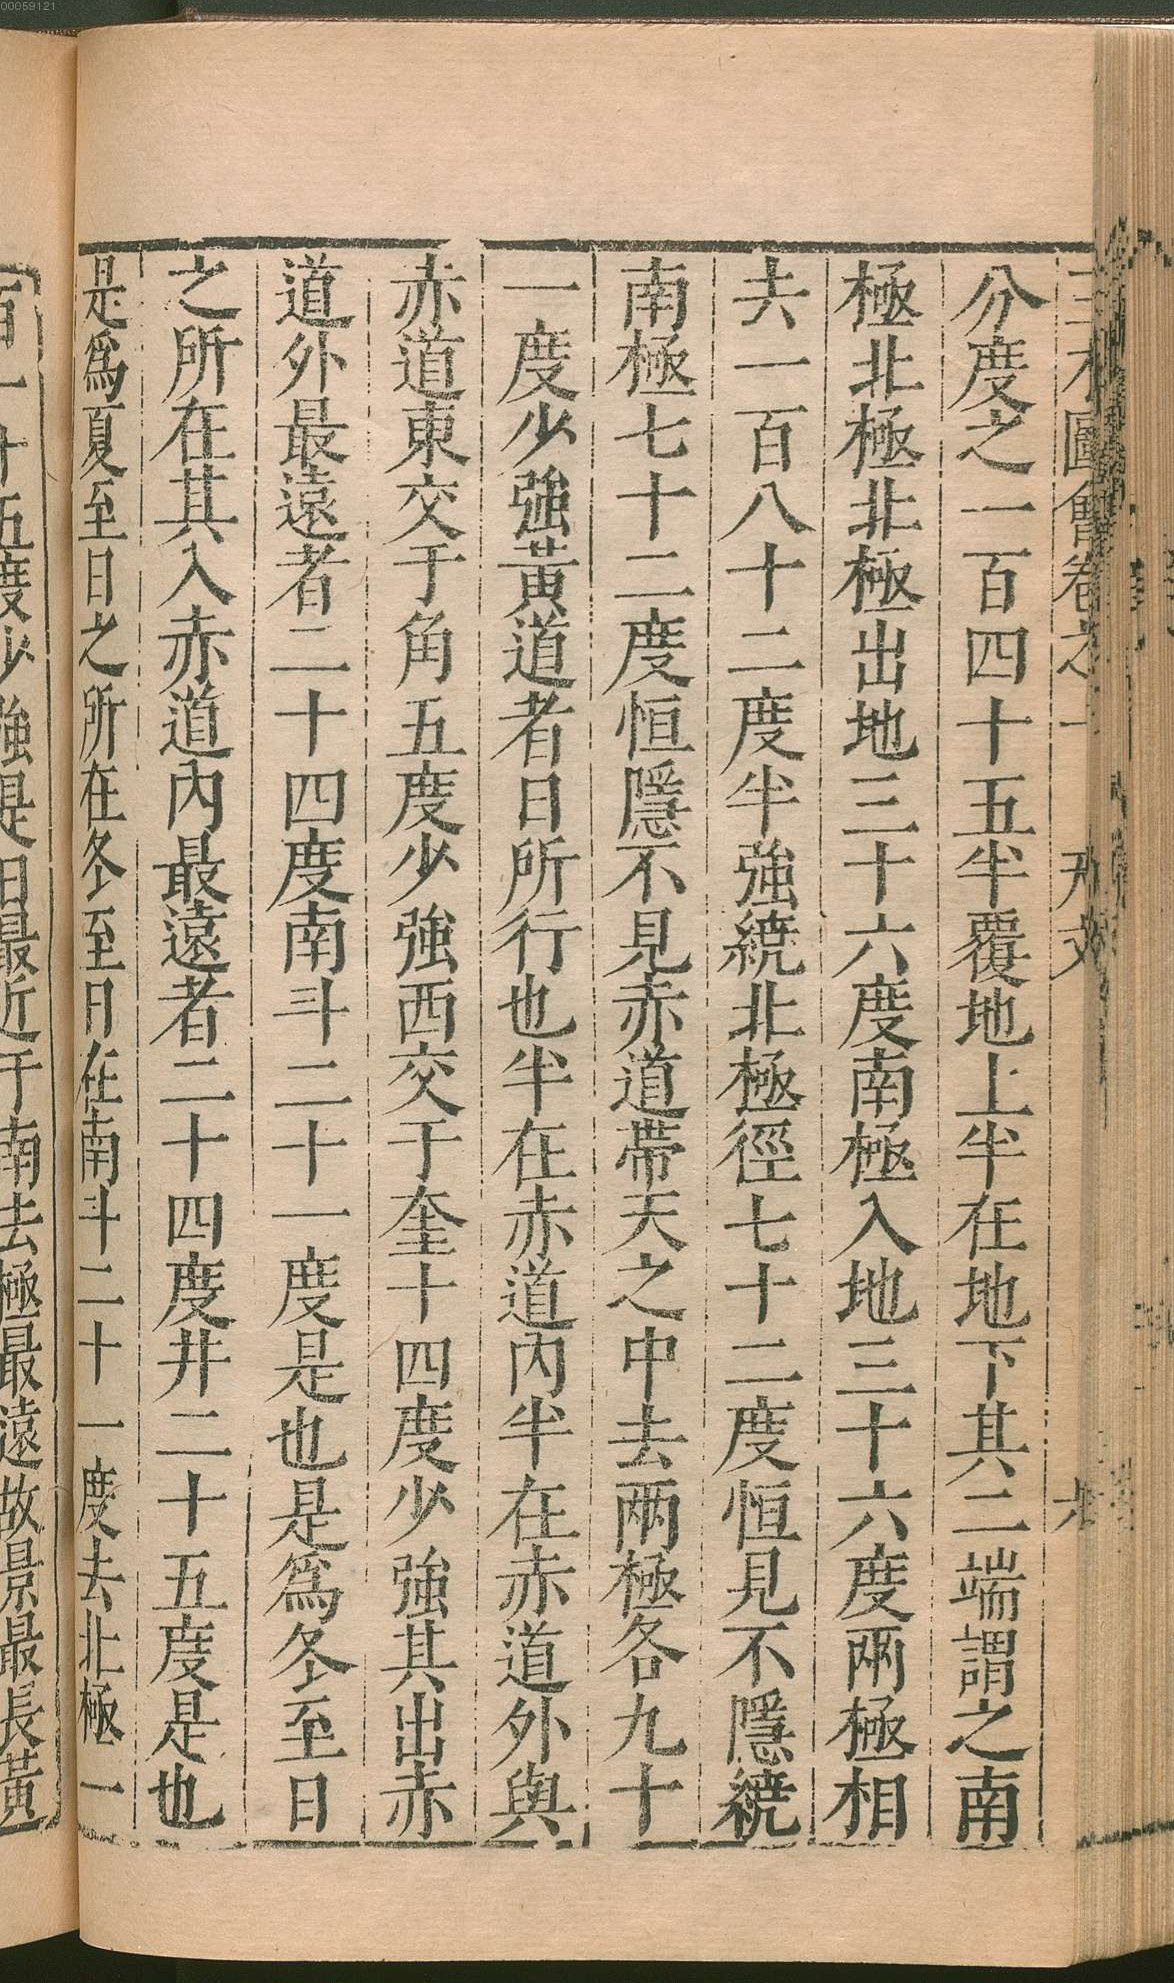 00059121
三才圖會卷之一 天文
分度之一百四十五半覆地上半在地下其二端謂之南
極北極北極出地三十六度南極入地三十六度兩極相
去一百八十二度半強繞北極徑七十二度恒見不隱繞
南極七十二度恒隱不見赤道帶天之中去兩極各九十
一度少強黃道者日所行也半在赤道內半在赤道外與
赤道東交于角五度少強西交于奎十四度少強其出赤
道外最遠者二十四度南斗二十一度是也是爲冬至日
之所在其入赤道內最遠者二十四度井二十五度是也
是爲夏至日之所在冬至日在南斗二十一度去北極一
百一十五度少強是日最近于南去極最遠故景最長黃